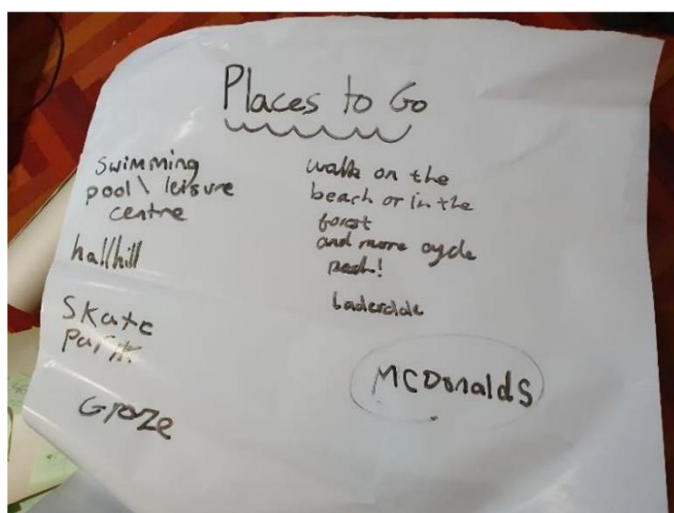 Places to Go
swimming
pool \ leisure
centre
hallhill
Skate
Park
Graze
walk on the
beach or in the
forest
and more cycle
path!
MCDonalds